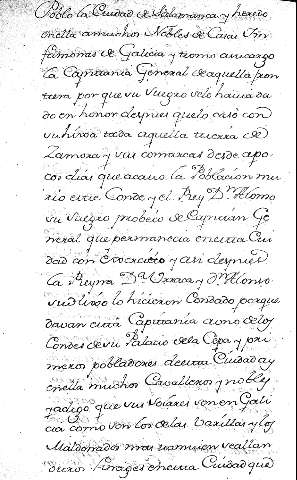 Poblo la Ciudad de Salamanca, y heredo
en ella a muchos Nobles de Casas Yn
fanzonas de Galicia y tomo a su cargo
la Capitania General de aquella fron
tera, por que su suegro se lo havia da
do en honor despues que lo caso con
su hija toda aquella tierra de
Zamora y sus comarcas desde a po
cos dias que acavo la Poblacion mu
rio este Conde, y el Rey Dn Alonso
su suegro probeio de Capitan Ge
neral que permanecia en esta Ciu
dad con exercicio y asi despues
la Reyna Da Urraca y Dn Alonso
su hijo lo hicieron Condado porque
davan esta Capitania a uno de los
Condes de su Palacio de la Copa, y pri
meros pobladores de esta Ciudad ay
en ella muchos Cavalleros y nobles
y digo que sus solares son en Gali
cia como son los de las Varillas y los
Maldonados mas tamvien se allan
otros linages en esta Ciudad que